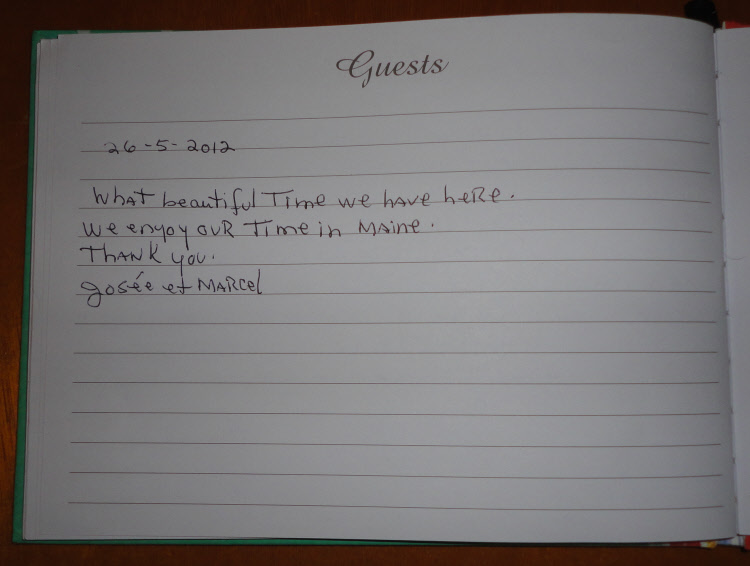 Guests
26-5-2012
What beautiful Time we have here.
We enyoy our Time in Maine.
Thank you.
Josée et Marcel